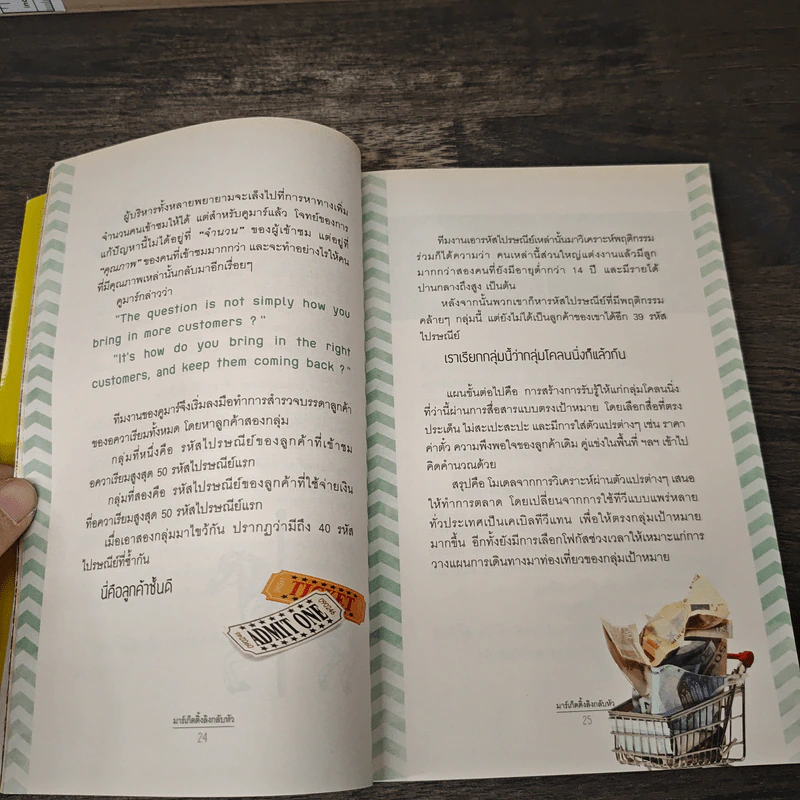 ผู้บริหารทั้งหลายพยายามจะเล็งไปที่การหาทางเพิ่ม
จำนวนคนเข้าชมให้ได้ แต่สำหรับคูมาร์แล้ว โจทย์ของการ
แก้ปัญหานี้ไม่ได้อยู่ที่ "จำนวน" ของผู้เข้าชม แต่อยู่ที่
"คุณภาพ" ของคนที่เข้าชมมากกว่า และจะทำอย่างไรให้คน
ที่มีคุณภาพเหล่านั้นกลับมาอีกเรื่อยๆ
คูมาร์กล่าวว่า
"The question is not simply how you
bring in more customers ? "
"It's how do you bring in the right
customers, and keep them coming back ? "
ทีมงานของคูมาร์จึงเริ่มลงมือทำการสำรวจบรรดาลูกค้า
ของอควาเรียมทั้งหมด โดยหาลูกค้าสองกลุ่ม
กลุ่มที่หนึ่งคือ รหัสไปรษณีย์ของลูกค้าที่เข้าชม
อควาเรียมสูงสุด 50 รหัสไปรษณีย์แรก
กลุ่มที่สองคือ รหัสไปรษณีย์ของลูกค้าที่ใช้จ่ายเงิน
ที่อควาเรียมสูงสุด 50 รหัสไปรษณีย์แรก
เมื่อเอาสองกลุ่มมาไขว้กัน ปรากฏว่ามีถึง 40 รหัส
ไปรษณีย์ที่ซ้ำกัน
นี่คือลูกค้าชั้นดี
TICKET
ADMIT ONE
มาร์เก็ตติ้งลิงกลับหัว
24
ทีมงานเอารหัสไปรษณีย์เหล่านั้นมาวิเคราะห์พฤติกรรม
ร่วมก็ได้ความว่า คนเหล่านี้ส่วนใหญ่แต่งงานแล้วมีลูก
มากกว่าสองคนที่ยังมีอายุต่ำกว่า 14 ปี และมีรายได้
ปานกลางถึงสูง เป็นต้น
หลังจากนั้นพวกเขาก็หารหัสไปรษณีย์ที่มีพฤติกรรม
คล้ายๆ กลุ่มนี้ แต่ยังไม่ได้เป็นลูกค้าของเขาได้อีก 39 รหัส
ไปรษณีย์
เราเรียกกลุ่มนี้ว่ากลุ่มโคลนนิ่งก็แล้วกัน
แผนขั้นต่อไปคือ การสร้างการรับรู้ให้แก่กลุ่มโคลนนิ่ง
ที่ว่านี้ผ่านการสื่อสารแบบตรงเป้าหมาย โดยเลือกสื่อที่ตรง
ประเด็น ไม่สะเปะสะปะ และมีการใส่ตัวแปรต่างๆ เช่น ราคา
ค่าตั๋ว ความพึงพอใจของลูกค้าเดิม คู่แข่งในพื้นที่ ฯลฯ เข้าไป
คิดคำนวณด้วย
สรุปคือ โมเดลจากการวิเคราะห์ผ่านตัวแปรต่างๆ เสนอ
ให้ทำการตลาด โดยเปลี่ยนจากการใช้ทีวีแบบแพร่หลาย
ทั่วประเทศเป็นเคเบิลทีวีแทน เพื่อให้ตรงกลุ่มเป้าหมาย
มากขึ้น อีกทั้งยังมีการเลือกโฟกัสช่วงเวลาให้เหมาะแก่การ
วางแผนการเดินทางมาท่องเที่ยวของกลุ่มเป้าหมาย
มาร์เก็ตติ้งลิงกลับหัว
25